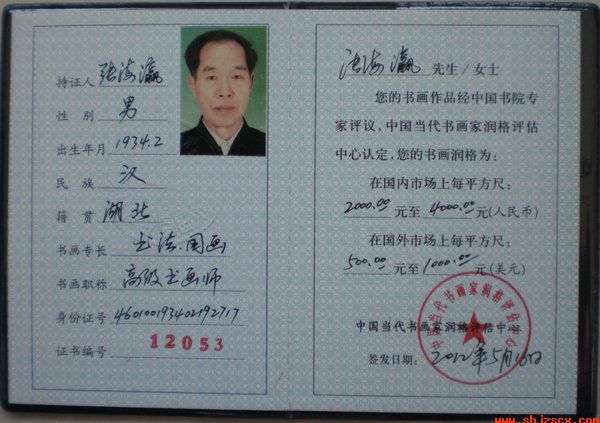 持证人 张海瀛
性 别 男
出生年月 1934.2
民 族 汉
籍 贯 湖北
书画专长 书法.国画
书画职称 高级书画师
身份证号 460100193402192717
证书编号 12053
张海瀛 先生/女士
您的书画作品经中国书院专
家评议，中国当代书画家润格评估
中心认定，您的书画润格为：
在国内市场上每平方尺：
2000.00 元至 4000.00 元(人民币)
在国外市场上每平方尺：
500.00 元至 1000.00 元(美元)
中国当代书画家润格评估中心
中国当代书画家润格评估中心
签发日期： 2012年5月16日
www.shjzscx.com